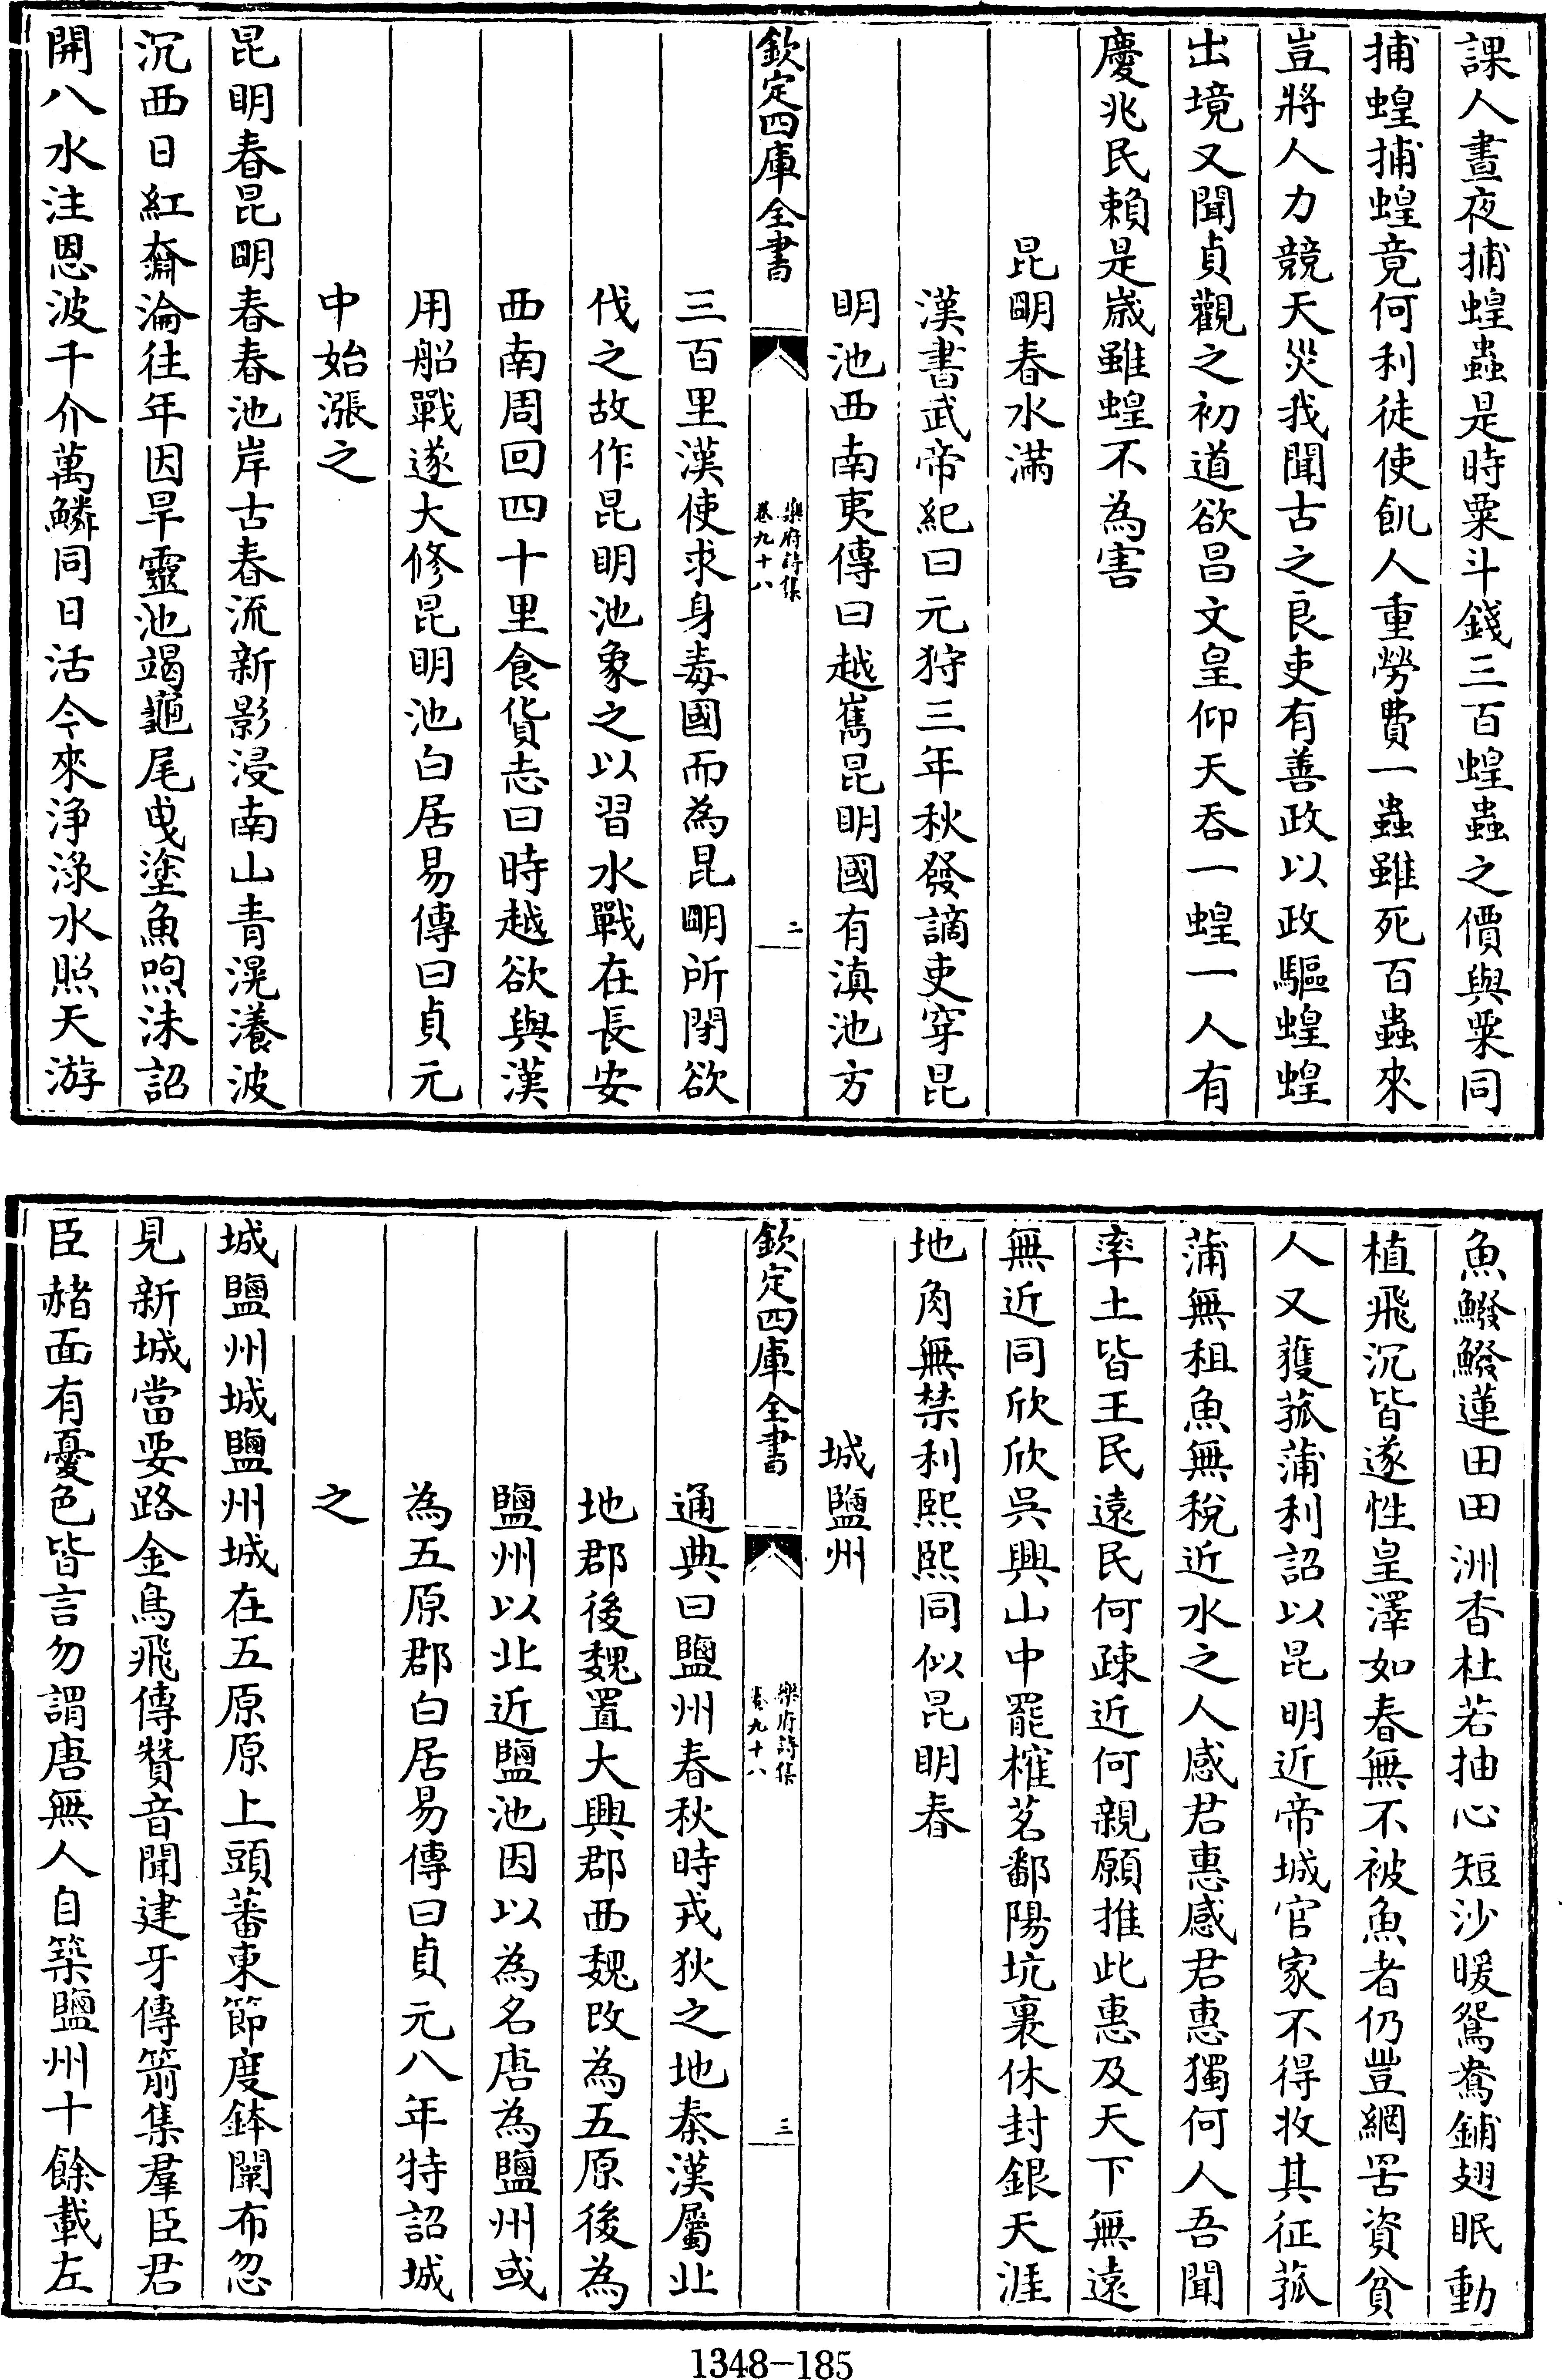 課人晝夜捕蝗蟲是時粟斗錢三百蝗蟲之價與粟同
捕蝗捕蝗竟何利徒使飢人重勞費一蟲雖死百蟲來
豈將人力競天災我聞古之良吏有善政以政驅蝗蝗
出境又聞貞觀之初道欲昌文皇仰天吞一蝗一人有
慶兆民賴是歲雖蝗不為害
昆明春水滿
漢書武帝紀曰元狩三年秋發謫吏穿昆
明池西南夷傳曰越嶲昆明國有滇池方
欽定四庫全書
樂府詩集
卷九十八
二
三百里漢使求身毒國而為昆明所閉欲
伐之故作昆明池象之以習水戰在長安
西南周回四十里食貨志曰時越欲與漢
用船戰遂大修昆明池白居易傳曰貞元
中始漲之
昆明春昆明春春池岸古春流新影浸南山青滉瀁波
沉西日紅奫淪往年因旱靈池竭龜尾曳塗魚喣沫詔
開八水注恩波千介萬鱗同日活今來淨淥水照天游
魚鱍鱍蓮田田洲香杜若抽心短沙暖鴛鴦鋪翅眠動
植飛沉皆遂性皇澤如春無不被魚者仍豐網罟資貧
人又獲菰蒲利詔以昆明近帝城官家不得收其征菰
蒲無租魚無稅近水之人感君惠感君惠獨何人吾聞
率土皆王民遠民何疎近何親願推此惠及天下無遠
無近同欣欣吳興山中罷榷茗鄱陽坑裏休封銀天涯
地角無禁利熙熙同似昆明春
城鹽州
欽定四庫全書
樂府詩集
卷九十八
三
通典曰鹽州春秋時戎狄之地秦漢屬北
地郡後魏置大興郡西魏改為五原後為
鹽州以北近鹽池因以為名唐為鹽州或
為五原郡白居易傳曰貞元八年特詔城
之
城鹽州城鹽州城在五原原上頭蕃東節度鉢闡布忽
見新城當要路金鳥飛傳贊音聞建牙傳箭集羣臣君
臣赭面有憂色皆言勿謂唐無人自築鹽州十餘載左
1348-185